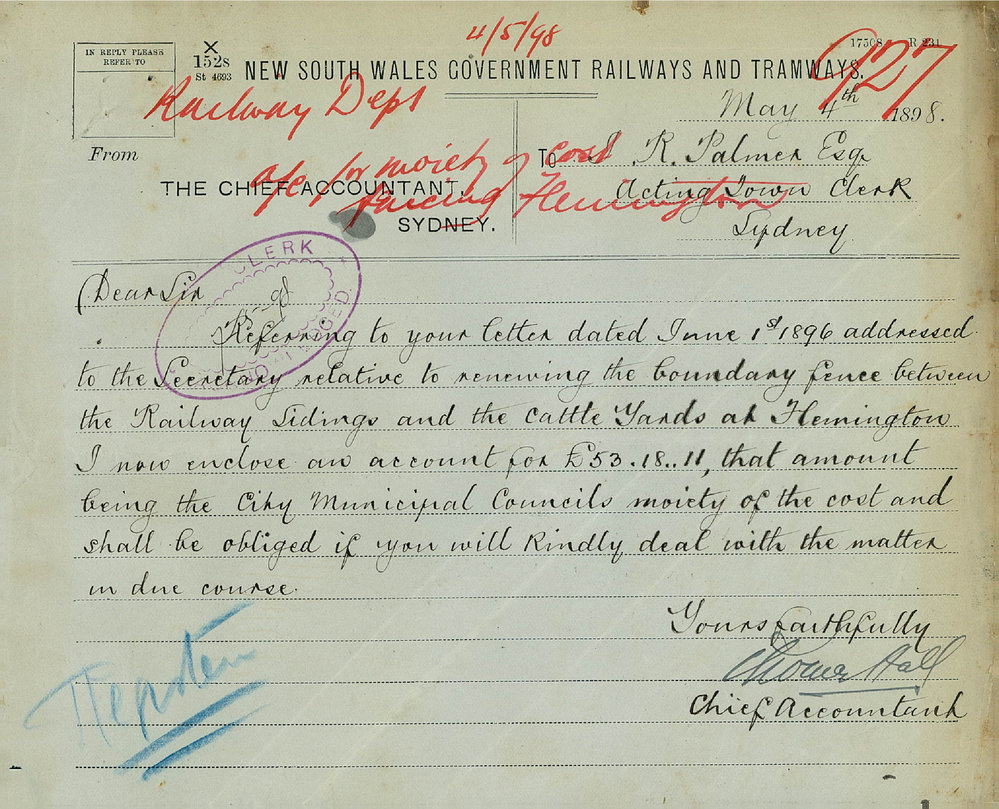 4/5/98
IN REPLY PLEASE
REFER TO
X
1528
St 4693
17508 R 231
927
NEW SOUTH WALES GOVERNMENT RAILWAYS AND TRAMWAYS.
Railway Dept
May 4th 1898.
From
THE CHIEF ACCOUNTANT,
SYDNEY.
a/c for moiety of cost
fencing Flemington
To J. R. Palmer Esq.
Acting Town Clerk
Sydney
CLERK
Dear Sir
Referring to your letter dated June 1st 1896 addressed
to the Secretary relative to renewing the boundary fence between
the Railway Sidings and the Cattle Yards at Flemington
I now enclose an account for £53.18..11, that amount
being the City Municipal Councils moiety of the cost and
shall be obliged if you will kindly deal with the matter
in due course.
Yours faithfully
Thomas Hall
Chief Accountant